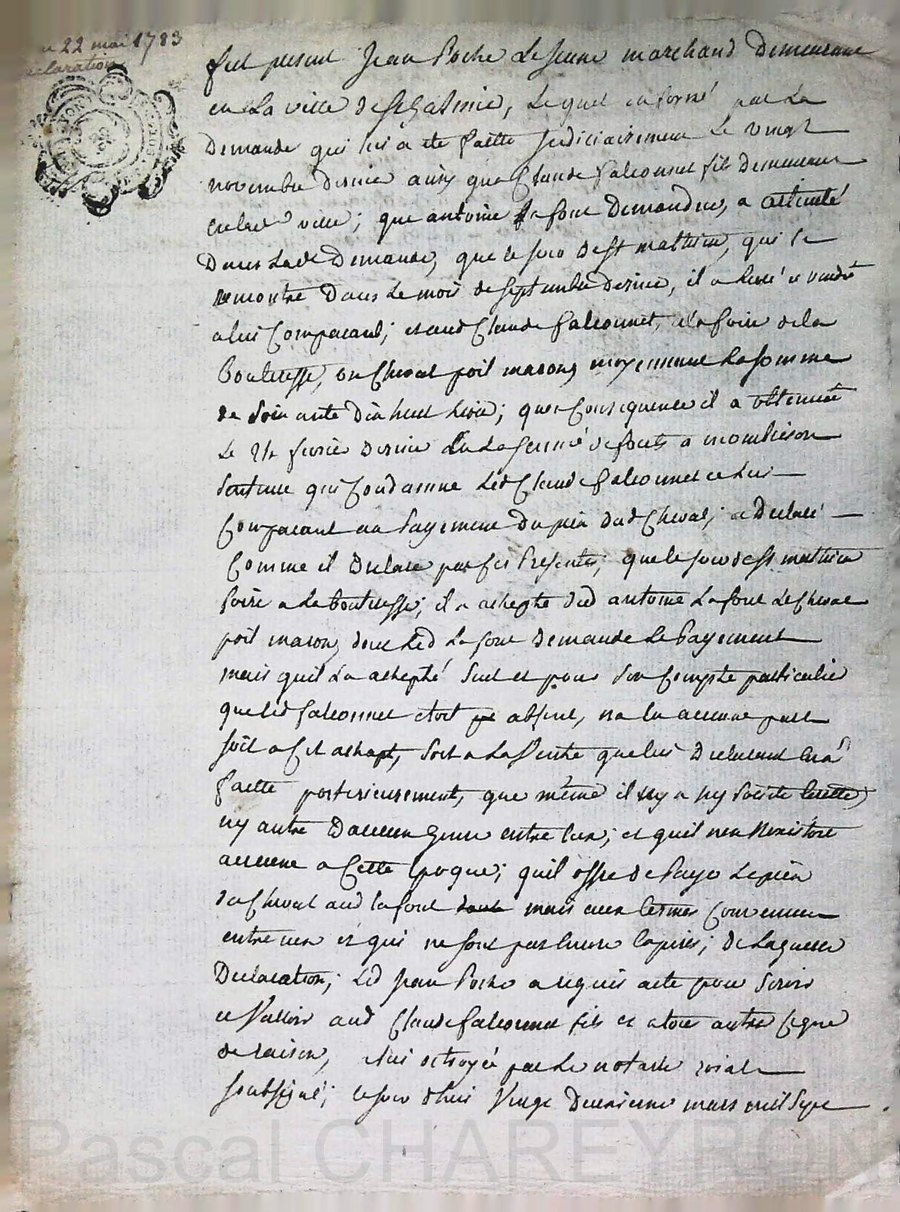 22 mai 1783
declaration
fut present Jean Poche Le Jeune marchand Demeurant
en La ville de St Galmier, Lequel informé par La
Demande qui lui a ete faitte Judiciairement Le vingt
novembre dernier ainsy que Claude falconnet fils Demeurant
en lad ville; que antoine Lafont Demandeur, a attenté
Dans Lade Demande, que le jour de St mathieu, qui se
rencontre Dans Le mois de septembre dernier, il a livré et vendu
a lui Comparant; et aud Claude falconnet, a la foire de la
Bouteresse, un Cheval poil maron, moyennant La somme
de soixante dix huit livres; que Consequence il a obtenue
Le 21e fevrier dernier En La senechaussée de forets a montbrison
Sentence qui Condamne Led Claude falconnet et Lui
Comparant au Payement Du prix dud Cheval; a Declaré
Comme il Declare par ses Presentes, que le jour de St mathieu
foire a La bouteresse; il a achepté dud antoine Lafont Le Cheval
poil maron, dont Led Lafont demande Le Payement
mais quil La achepté seul et pour son Compte particulier
que led falconnet etoit absent, na eu aucune part
soit a Cet achapt, soit a La Vente quelui Declarant en a
faitte posterieurement, que même il ny a ny societé
ny autre D'aucun genre entre eux; et quil nen Existoit
aucune a Cette Epoque; quil offre de Payer Le prix
du Cheval aud lafont mais aux termes Convenus
entre eux et qui ne sont pas encore Expirés; de Laquelle
Declaration; Led Jean Poche a requis acte pour servir
et Valloir aud Claude falconnet fils et a tout autre Cegue
de raison, a lui octroyée par Le notaire roial
soubsigné; cejourdhui Vingt Deuxieme mars mil sept
Pascal CHAREYRON